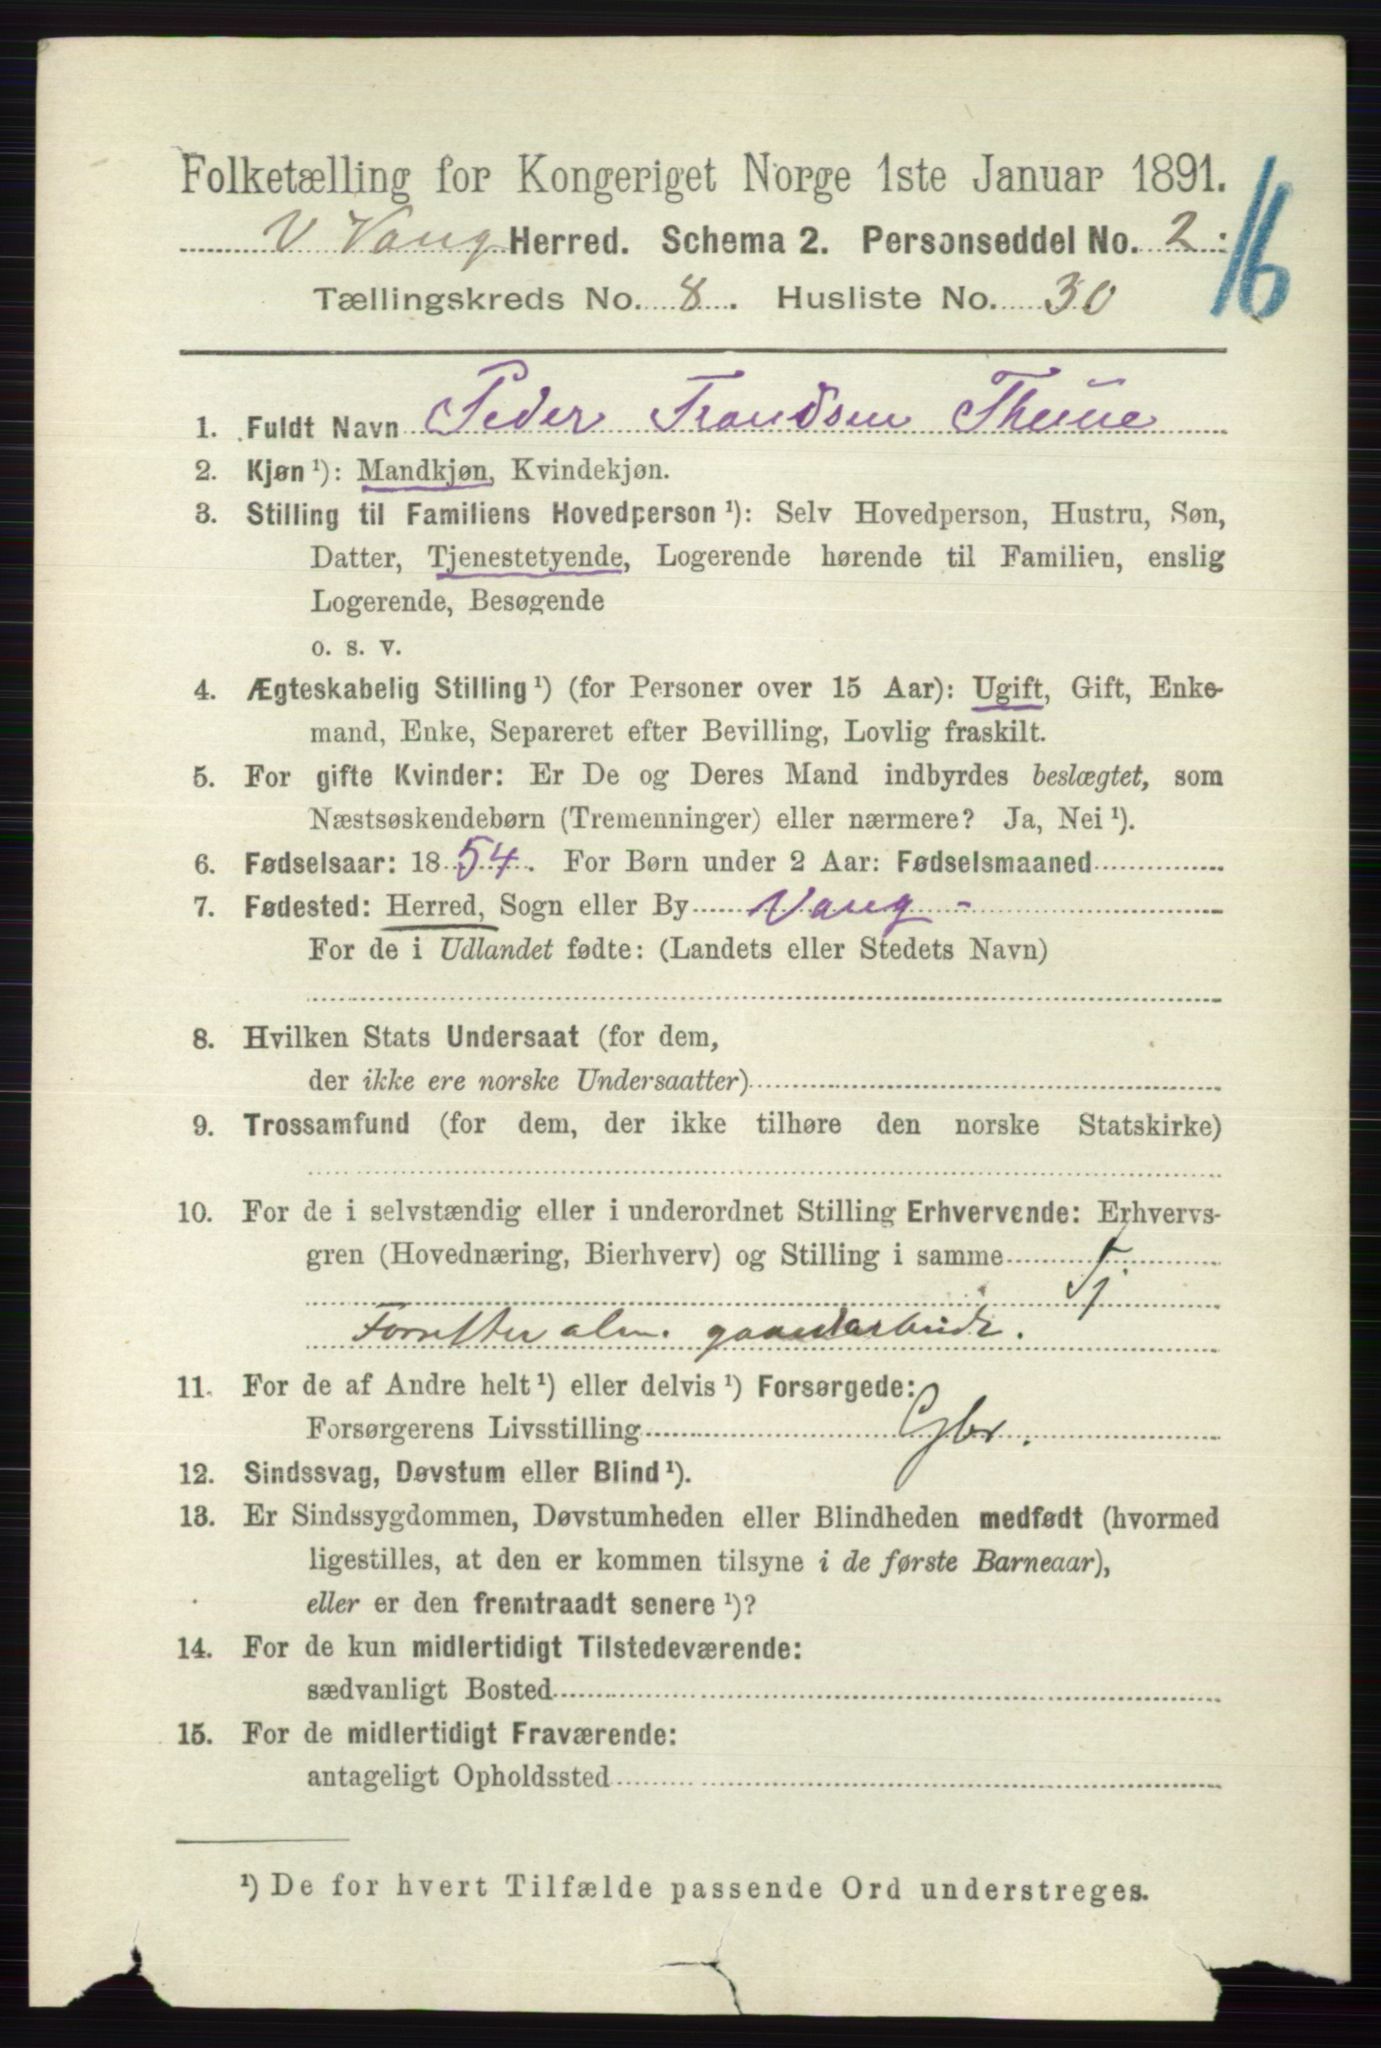 Folketælling for Kongeriget Norge 1ste Januar 1891.
16
V Vang Herred. Schema 2. Personseddel No. 2.
Tællingskreds No. 8. Husliste No. 30
1. Fuldt Navn Peder Trondsen Thune
2. Kjøn ¹): Mandkjøn, Kvindekjøn.
3. Stilling til Familiens Hovedperson ¹): Selv Hovedperson, Hustru, Søn,
Datter, Tjenestetyende, Logerende hørende til Familien, enslig
Logerende, Besøgende
o. s. v.
4. Ægteskabelig Stilling ¹) (for Personer over 15 Aar): Ugift, Gift, Enke-
mand, Enke, Separeret efter Bevilling, Lovlig fraskilt.
5. For gifte Kvinder: Er De og Deres Mand indbyrdes beslægtet, som
Næstsøskendebørn (Tremenninger) eller nærmere? Ja, Nei ¹).
6. Fødselsaar: 1854. For Børn under 2 Aar: Fødselsmaaned
7. Fødested: Herred, Sogn eller By Vang -
For de i Udlandet fødte: (Landets eller Stedets Navn)
8. Hvilken Stats Undersaat (for dem,
der ikke ere norske Undersaatter)
9. Trossamfund (for dem, der ikke tilhøre den norske Statskirke)
10. For de i selvstændig eller i underordnet Stilling Erhvervende: Erhvervs-
gren (Hovednæring, Bierhverv) og Stilling i samme Tj.
Forretter alm. gaardarbeide.
11. For de af Andre helt ¹) eller delvis ¹) Forsørgede:
Forsørgerens Livsstilling Gbr.
12. Sindssvag, Døvstum eller Blind ¹).
13. Er Sindssygdommen, Døvstumheden eller Blindheden medfødt (hvormed
ligestilles, at den er kommen tilsyne i de første Barneaar),
eller er den fremtraadt senere ¹)?
14. For de kun midlertidigt Tilstedeværende:
sædvanligt Bosted
15. For de midlertidigt Fraværende:
antageligt Opholdssted
¹) De for hvert Tilfælde passende Ord understreges.